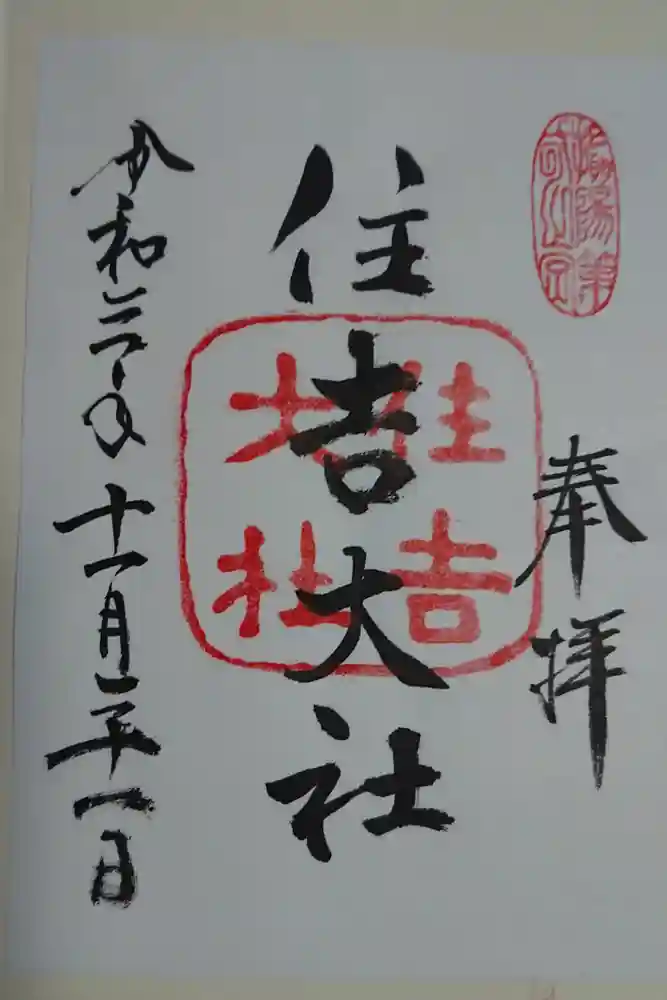 奉拝
住吉大社
住吉
大社
令和三年十一月二十一日